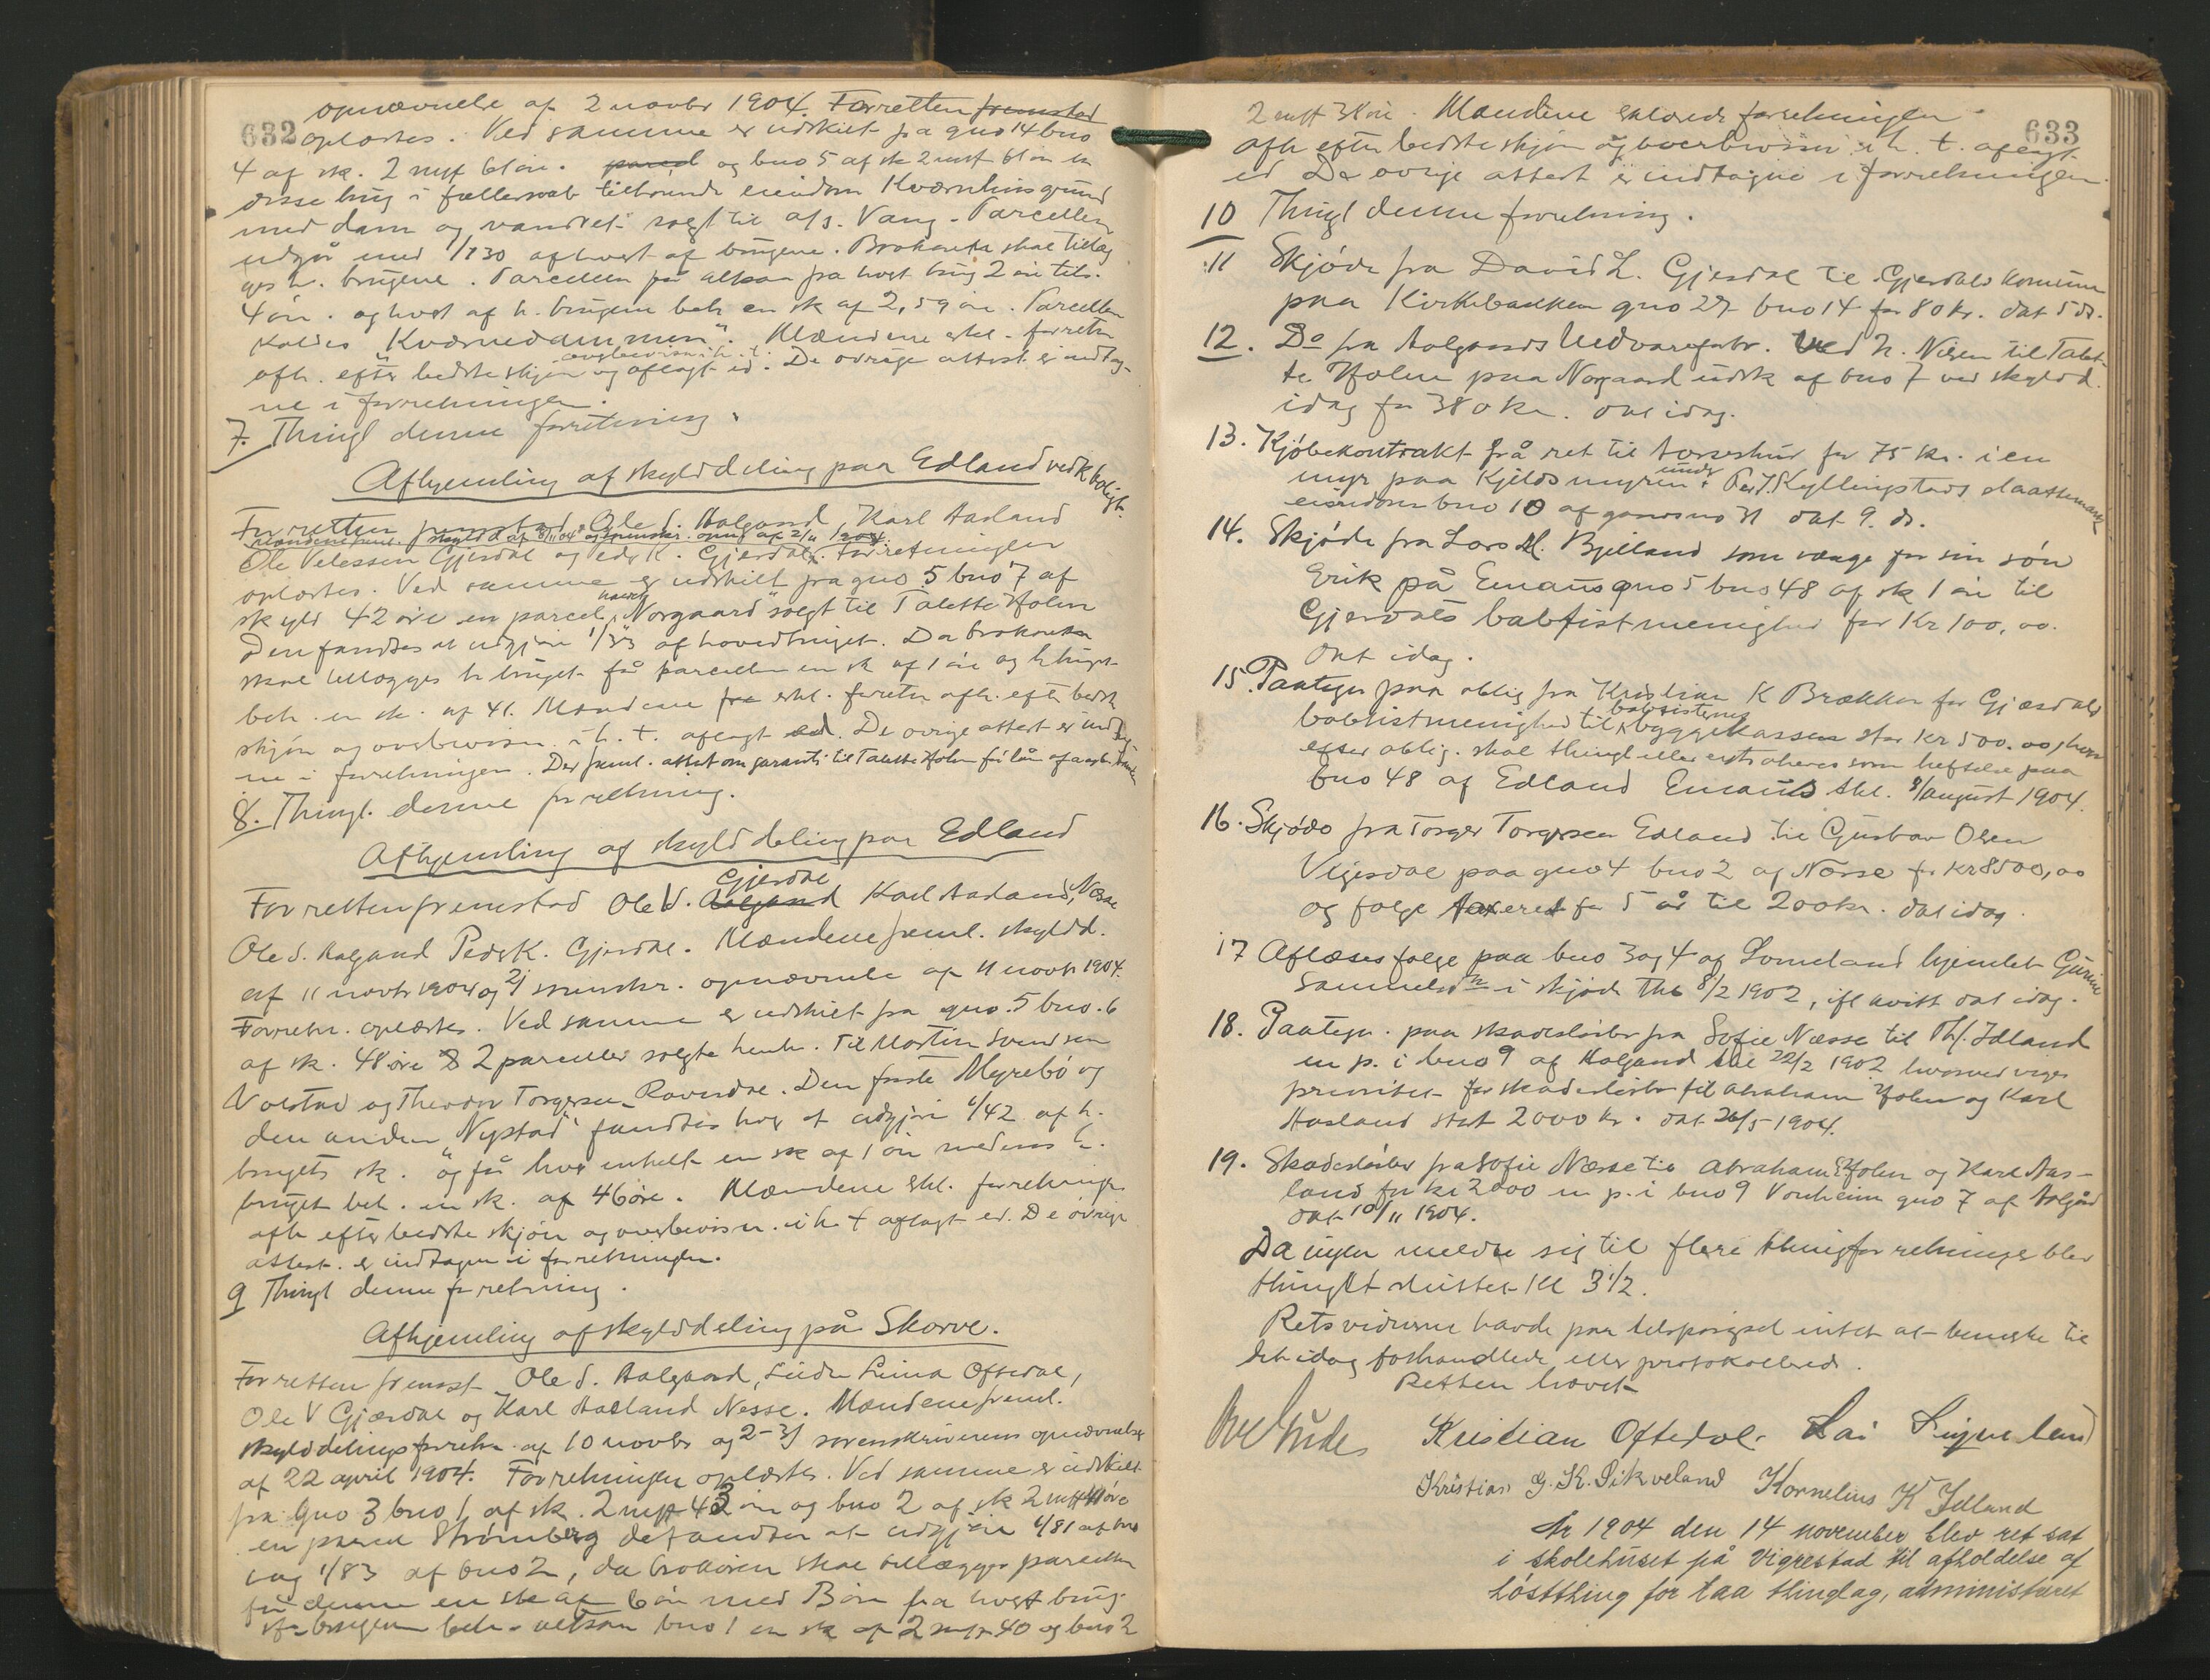 632
opnævnelse af 2 novbr 1904. Forretten fremstod
oplæstes. Ved samme er udskilt fra gno 14 bno
4 af sk. 2 mrk 61 øre. parcel og bno 5 af sk 2 mrk 61 øre en
disse brug i fælleskab tilhørende eiendom Kværnhusgrund
med dam og vandret solgt til a/s. Vang. Parcellen
udgør med 1/130 af hvert af brugene. Brøkøren skal tillæg
ges h. brugene. Parcellen får altsaa fra hvert brug 2 øre tils.
4 øre. og hvert af h. brugene beh en sk af 2,59 øre. Parcellen
kaldes Kværnedammen". Mændene erkl. forretn
overbevisn i h. t.
afh. efter bedste skjøn og aflagt ed. De øvrige attest. er indtag-
ne i forretningen.
7. Thingl denne forretning.
Afhjemling af skylddeling paa Edland vedk boligt.
For retten fremstod Ole S. Aalgaard, Karl Aasland
Mændene freml. skyldd af 8/11 04 og sorenskr. opn af 2/11 1904.
Ole Velessen Gjesdal og Peder K. Gjesdal. Forretningen
oplæstes. Ved samme er udskilt fra gno 5 bno 7 af
skyld 42 øre en parcel, navn Norgaard" solgt til Talette Holen
Den fandtes at udgjøre 1/35 af hovedbruget. Da brøkøren
skal tillægges h. bruget får parcellen en sk af 1 øre og h bruget
beh. en sk. af 41. Mændene fra erkl. forretn afh. efter bedste
skjøn og overbevisn i h. t. aflagt ed. De øvrige attest er indtag
ne i forretningen. Der freml. attest om garanti til Talette Holen få lån af
8. Thingl. denne forretning.
Afhjemling af skylddeling paa Edland
For retten fremstod Ole V. Aalgaard Gjesdal Karl Aasland, Næsse
Ole S. Aalgaard Peder K. Gjesdal. Mændene freml. skyldd.
af 11 novbr 1904 og 2) sorenskr. opnævnelse af 11 novbr 1904.
Forretn. oplæstes. Ved samme er udskilt fra gno. 5 bno. 6
af sk. 48 øre 2 parceller solgte henh. til Martin Svendsen
Nolstad og Theodor Torgersen Ravndal. Den første Myrebø og
den anden Nystad" fandtes hver at udgjøre 1/42 af h.
brugets sk. og får hver enkelt en sk af 1 øre medens h.
bruget beh. en sk. af 46 øre. Mændene erkl. forretninger
afh efter bedste skjøn og overbevisn. i h. t aflagt ed. De øvrige
attest. er indtagne i forretningen.
9 Thingl denne forretning.
Afhjemling af skylddeling på Skorve.
For retten fremst Ole S. Aalgaard, Oftedal,
Ole V Gjesdal og Karl Aasland Nesse. Mændene freml.
skylddelingsforretn. af 10 novbr og 2-3) sorenskriverens opnævnelse
af 22 april 1904. Forretningen oplæstes. Ved samme er udskilt
fra gno 3 bno 1 af sk. 2 mrk 43 øre og bno 2 af sk 2 mrk 41 øre
en parcel Strømberg det fandtes at udgjøre 1/81 af bno
1 og 1/83 af bno 2, da brøkøren skal tillægges parcellen
får denne en sk af 6 øre med 3 øre fra hvert brug.
H-brugene beh. altsaa bno 1 en sk af 2 mrk 40 og bno 2
633
2 mrk 38 øre. Mændene erklærede forretningen
afh efter bedste skjøn og overbevisn i h. t. aflagt
ed De øvrige attest er indtagne i forretningen.
10 Thingl denne forretning.
11 Skjøde fra David L. Gjesdal til Gjesdals kommune
paa Kirkebakken gno 27 bno 14 for 80 kr. dat 5 ds.
12. Do fra Aalgaards Uldvarefabr. ved N. Nilsen til Talet-
te Holen paa Norgaard udsk af bno 7 ved skyldd.
idag for 380 kr. dat idag.
13. Kjøbekontrakt på ret til torveskur for 75 kr. i en
myr paa Kjeldsmyren under P. J. Kyllingstads slaattemark
eiendom bno 10 af gaardsno 31 dat 9. ds.
14. Skjøde fra Lars M. Bjelland som værge for sin søn
Erik på Emaus gno 5 bno 48 af sk 1 øre til
Gjesdals babtistmenighed for Kr 100,00.
dat idag.
15. Paategn paa oblig fra Kristian K Brækken for Gjæsdals
babtistmenighed til babtisternes byggekasse stor kr 500.00, hvor
efter oblig. skal thingl eller extraheres som heftelse paa
bno 48 af Edland Emaus thl. 8/august 1904.
16. Skjøde fra Torger Torgersen Edland til Gustav Olsen
Vigesdal paa gno 4 bno 2 af Næsse for kr 8500,00
og følge taxeret for 5 år til 200 kr. dat idag.
17 Aflæses følge paa bno 3 og 4 af Lomeland hjemlet Gurine
Samuelsdtr i skjøde thl 8/2 1902, ifl kvitt dat idag.
18. Paategn. paa skadesløsbr fra Sofie Næsse til Th. Idland
en p. i bno 9 af Aalgaard thl 22/2 1902 hvorved viges
prioritet for skadesløsbr til Abraham Holen og Karl
Aasland stort 2000 kr. dat 26/5 1904.
19. Skadesløsbr fra Sofie Næsse til Abraham Holen og Karl Aas-
land for kr 2000 en p. i bno 9 Vonheim gno 7 af Aalgård
dat 10/11 1904.
Da ingen meldte sig til flere thingforretninger blev
thinget sluttet kl 3 1/2.
Retsvidnerne havde paa tilspørgsel intet at bemerke til
det idag forhandlede eller protokollerede.
Retten hævet
Kristian Oftedal. Lars Lygneland
Kristian G. K. Sikveland Kornelius K Idland
År 1904 den 14 november blev ret sat
i skolehuset på Vigrestad til afholdelse af
høstthing for Haa thinglag, administreret